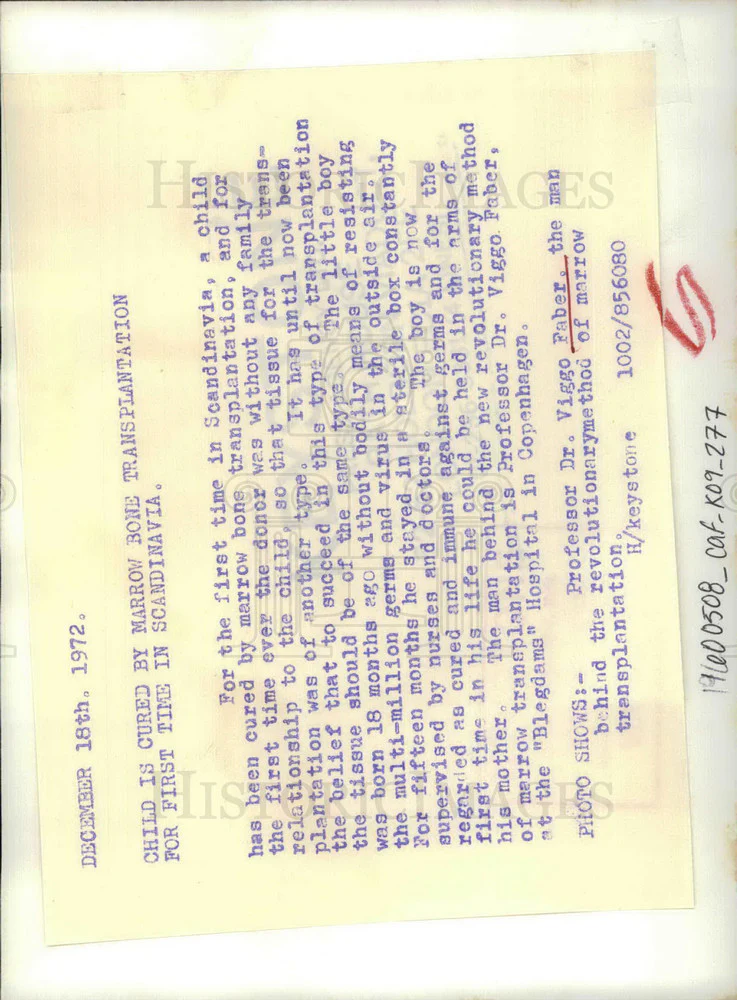 DECEMBER 18th. 1972.
CHILD IS CURED BY MARROW BONE TRANSPLANTATION
FOR FIRST TIME IN SCANDINAVIA.
For the first time in Scandinavia, a child
has been cured by marrow bone transplantation, and for
the first time ever the donor was without any family
relationship to the child, so that tissue for the trans-
plantation was of another type. It has until now been
the belief that to succeed in this type of transplantation
the tissue should be of the same type. The little boy
was born 18 months ago without bodily means of resisting
the multi-million germs and virus in the outside air.
For fifteen months he stayed in a sterile box constantly
supervised by nurses and doctors. The boy is now
regarded as cured and immune against germs and for the
first time in his life he could be held in the arms of
his mother. The man behind the new revolutionary method
of marrow transplantation is Professor Dr. Viggo Faber,
at the "Blegdams" Hospital in Copenhagen.
PHOTO SHOWS:- Professor Dr. Viggo Faber, the man
behind the revolutionarymethod of marrow
transplantation.
H/keystone 1002/856080
5
19600508_CAF-K09-277
HISTORIC IMAGES
HISTORIC IMAGES